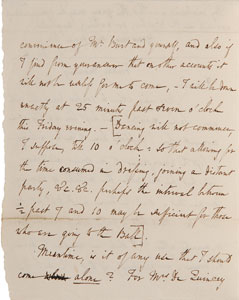 convenience of Mr Burt and yourself, and also if
I find from yourselves that on other accounts it
will not be useful for me to come, — I will be down
exactly at 25 minutes past seven o'clock
this Friday evening. — [Dancing will not commence,
I suppose, till 10 o'clock: so that allowing for
the time consumed in dressing, joining a distant
party, &c. &c. perhaps the interval between
½ past 7 and 10 may be sufficient for those
who are going to the Ball].
Meantime, is it of any use that I should
come alone? For Mrs De Quincey